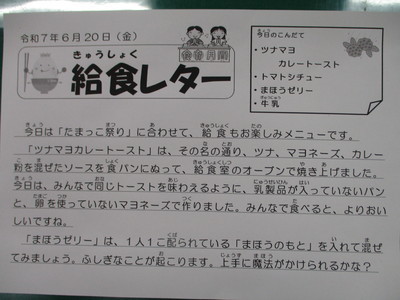 令和7年6月20日（金）
きゅうしょく
給食レター
今日のこんだて
・ツナマヨ
カレートースト
・トマトシチュー
・まほうゼリー
・牛乳
今日は「たまっこ祭り」に合わせて、給食もお楽しみメニューです。
「ツナマヨカレートースト」は、その名の通り、ツナ、マヨネーズ、カレー
粉を混ぜたソースを食パンにぬって、給食室のオーブンで焼き上げました。
今日は、みんなで同じトーストを味わえるように、乳製品が入っていないパン
と、卵を使っていないマヨネーズで作りました。みんなで食べると、よりおい
しいですね。
「まほうゼリー」は、1人1こ配られている「まほうのもと」を入れて混ぜ
てみましょう。ふしぎなことが起こります。上手に魔法がかけられるかな？